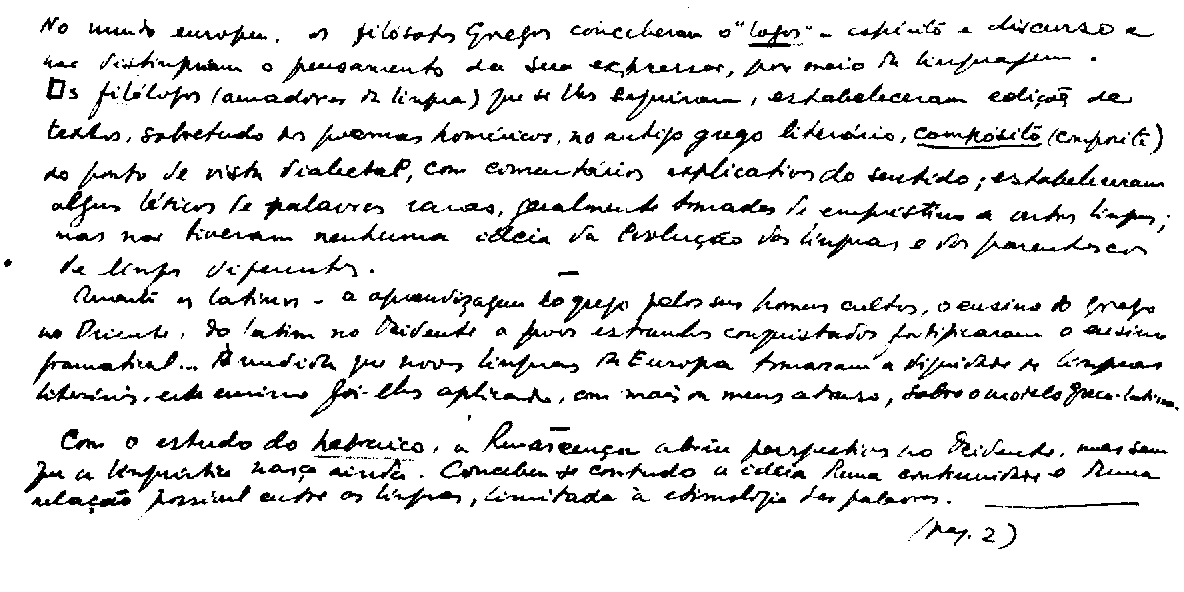 No mundo europeu, os filósofos Gregos conceberam o "logos" - espírito e discurso e
não distinguiam o pensamento da sua expressão, por meio da linguagem.
Os filólogos (amadores da língua) que se lhes seguiram, estabeleceram edições de
textos, sobretudo dos poemas homéricos, no antigo grego literário, compósito (composite)
do ponto de vista dialectal, com comentários explicativos do sentido; estabeleceram
alguns léxicos de palavras raras, geralmente tomadas de empréstimo a outras línguas;
mas não tiveram nenhuma ideia da Evolução das línguas e dos parentescos
de línguas diferentes.
os latinos - a aprendizagem do grego pelos seus homens cultos, o ensino do grego
no Oriente, do latim no Ocidente a povos estranhos conquistados fortificaram o ensino
gramatical... À medida que novas línguas da Europa tomaram a dignidade de línguas
literárias, este ensino foi-lhes aplicado, com mais ou menos atraso, sobre o modelo greco-latino.
Com o estudo do hebraico, a Renascença abriu perspectivas no Ocidente, mas sem
que a linguística nasça ainda. Concebeu-se contudo a ideia duma continuidade e duma
relação possível entre as línguas, limitada à etimologia das palavras.
(pag. 2)